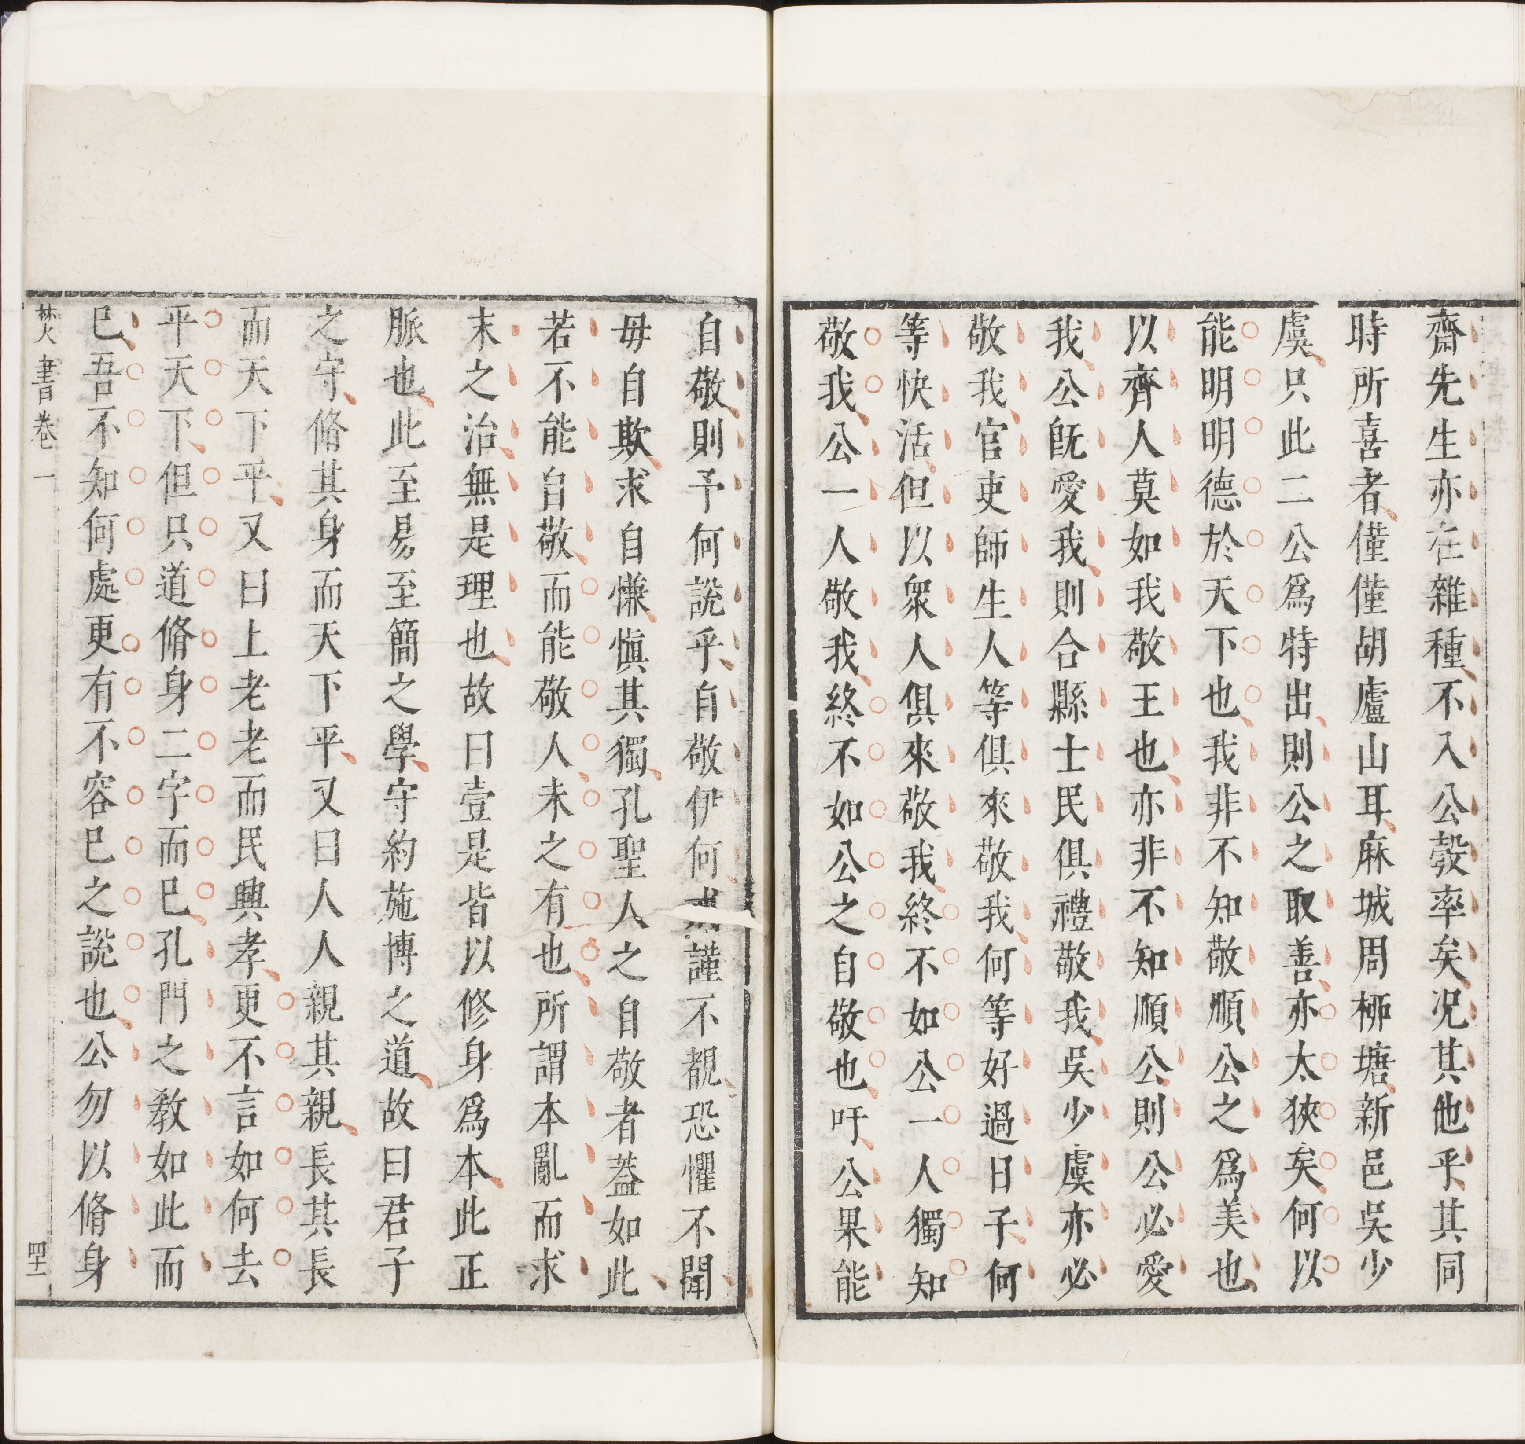 齋先生亦在雜種不入公彀率矣况其他乎其同
時所喜者僅僅胡廬山耳麻城周柳塘新邑吳少
虞只此二公爲特出則公之取善亦太狹矣何以
能明明德於天下也我非不知敬順公之爲美也
以齊人莫如我敬王也亦非不知順公則公必愛
我公旣愛我則合縣士民俱禮敬我吳少虞亦必
敬我官吏師生人等俱來敬我何等好過日子何
等快活但以衆人俱來敬我終不如公一人獨知
敬我公一人敬我終不如公之自敬也吁公果能
自敬則予何說乎自敬伊何謹不覩恐懼不聞
毋自欺求自慊愼其獨孔聖人之自敬者葢如此
若不能自敬而能敬人未之有也所謂本亂而求
末之治無是理也故曰壹是皆以修身爲本此正
脈也此至易至簡之學守約施博之道故曰君子
之守脩其身而天下平又曰人人親其親長其長
而天下平又曰上老老而民興孝更不言如何去
平天下但只道脩身二字而已孔門之敎如此而
已吾不知何處更有不容已之說也公勿以脩身
焚書卷一 四十一